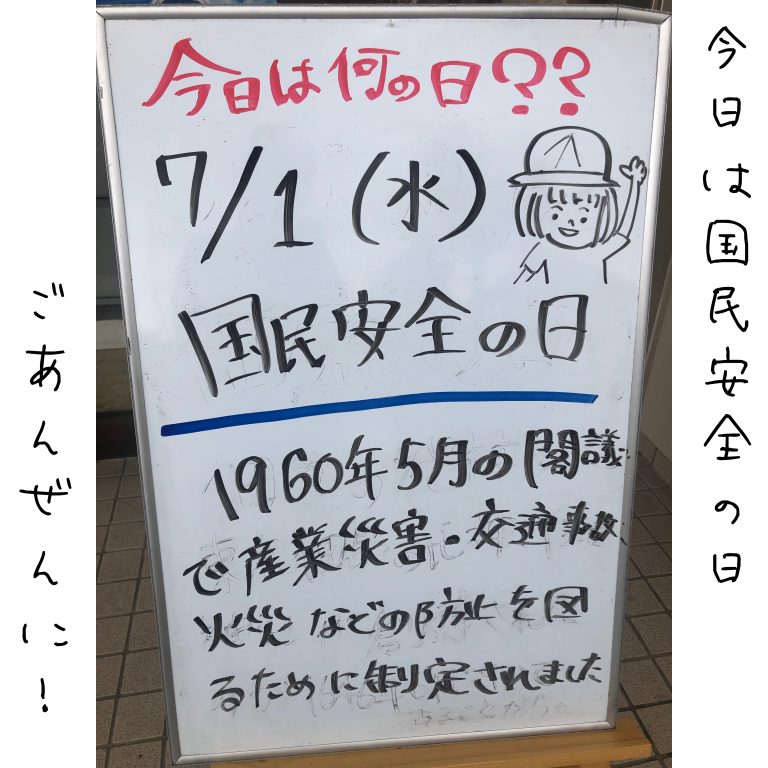 今日は何の日??
7/1(水)
国民安全の日
1960年5月の閣議
で産業災害・交通事故
火災などの防止を図
るために制定されました
今日は国民安全の日
ごあんぜんに!